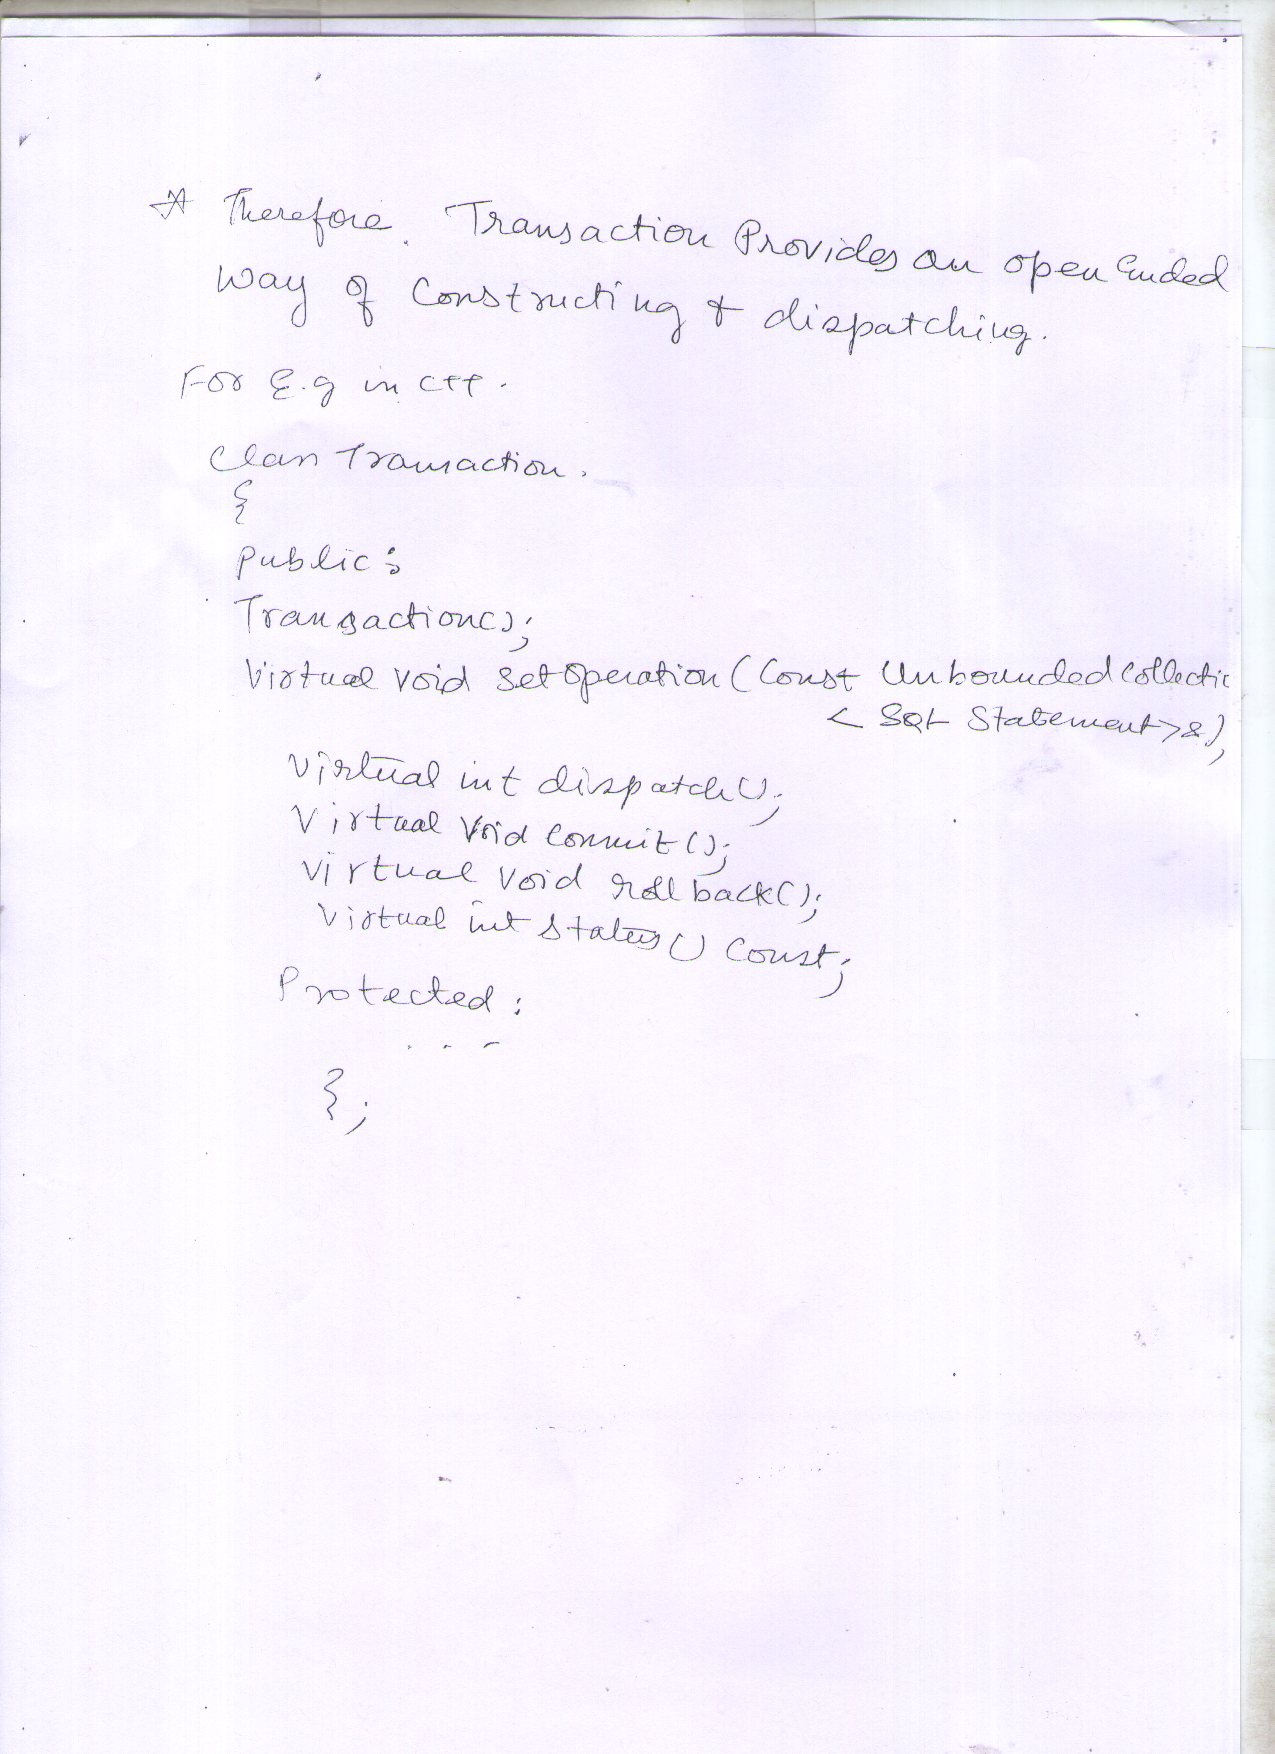 * Therefore, Transaction Provides an open Ended
Way of Constructing & dispatching.
For E.g in C++.
Class Transaction.
{
Public:
Transaction();
Virtual void setOperation (Const Unbounded Collectio
< SQL Statement>&),
Virtual int dispatch();
Virtual Void Commit();
Virtual Void rollback();
Virtual int Status() Const;
Protected:
. . -
};